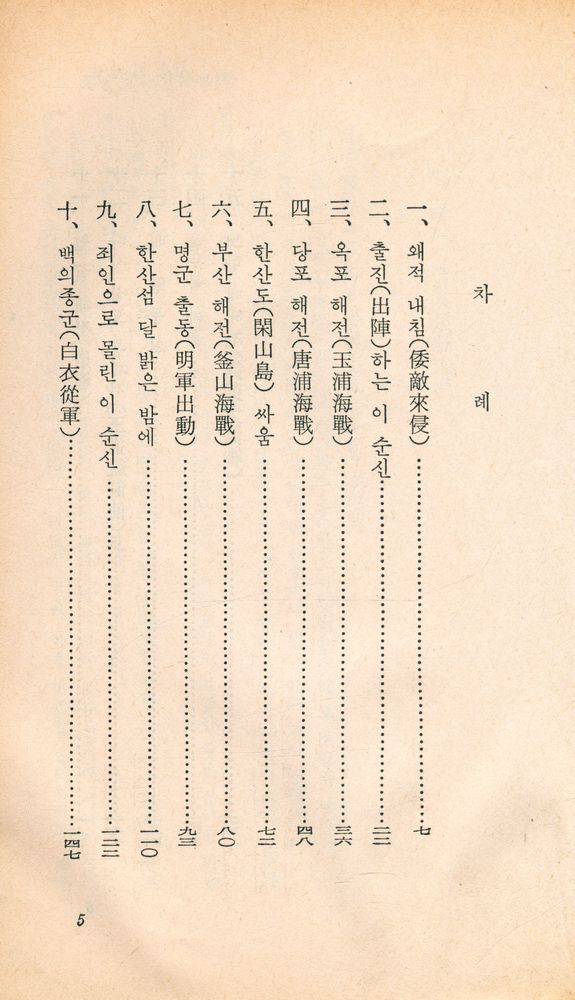 차 례
一、 왜적 내침(倭敵來侵)……七
二、 출진(出陣)하는 이 순신……二二
三、 옥포 해전(玉浦海戰)……三六
四、 당포 해전(唐浦海戰)……四八
五、 한산도(閑山島) 싸움……七二
六、 부산 해전(釜山海戰)……八〇
七、 명군 출동(明軍出動)……九三
八、 한산섬 달 밝은 밤에……一一〇
九、 죄인으로 몰린 이 순신……一二二
十、 백의종군(白衣從軍)……一四七
5